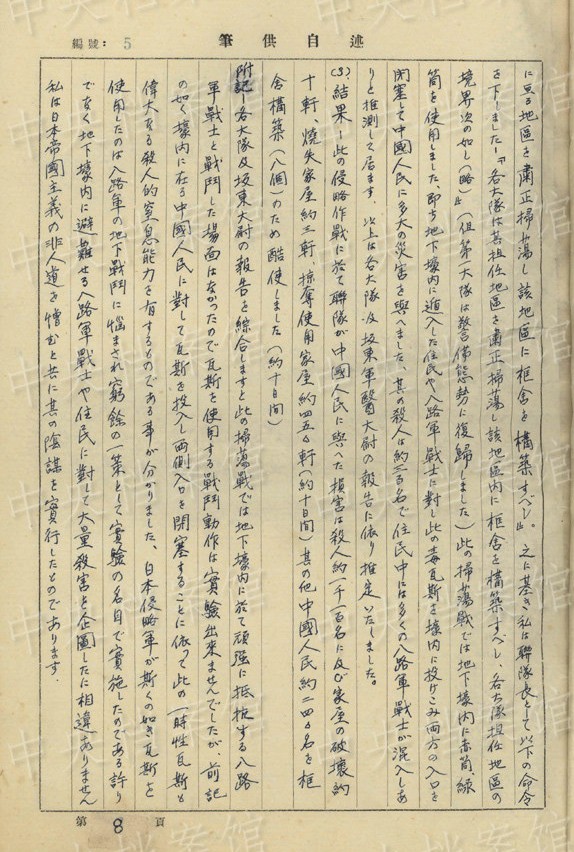 編號：5
筆供自述
に亘る地區を肅正掃蕩し該地區に柜舎を構築すべし』。之に基き私は聯隊長として以下の命令
を下しました―『各大隊は其担任地區を肅正掃蕩し該地區内に柜舎を構築すべし、各大隊担任地區の
境界次の如し(略)』(但第一大隊は警備態勢に復歸しました)此の掃蕩戰では地下壕内に赤筒、緑
筒を使用しました、即ち地下壕内に遁入した住民や八路軍戰士に對し此の毒瓦斯を壕内に投げこみ両方の入口を
閉塞して中國人民に多大の災害を與へました、其の殺人は約三百名で住民中には多くの八路軍戰士が混入しあ
りと推測して居ます、以上は各大隊及坂東軍醫大尉の報告に依り推定いたしました。
(3)結果―此の侵略作戰に於て聯隊が中國人民に與へた損害は殺人約一千一百名に及び家屋の破壞約
十軒、燒失家屋約三軒、掠奪使用家屋約四五〇軒(約十日間)其の他中國人民約二四〇名を柜
舎構築(八個)のため酷使しました(約十日間)
附記―各大隊及坂東大尉の報告を綜合しますと此の掃蕩戰では地下壕内に於て頑強に抵抗する八路
軍戰士と戰鬥した場面はなかったので瓦斯を使用する戰鬥動作は實驗出來ませんでしたが、前記
の如く壕内に在る中國人民に對して瓦斯を投入し両側入口を閉塞することに依って此の一時性瓦斯も
偉大なる殺人的窒息能力を有するものである事が分かりました、日本侵略軍が斯くの如き瓦斯を
使用したのは八路軍の地下戰鬥に惱まされ窮餘の一策として實驗の名目で實施したのである許り
でなく地下壕内に避難せる八路軍戰士や住民に對して大量殺害を企圖したに相違ありません
私は日本帝國主義の非人道を憎むと共に其の陰謀を實行したものであります.
第 8 頁